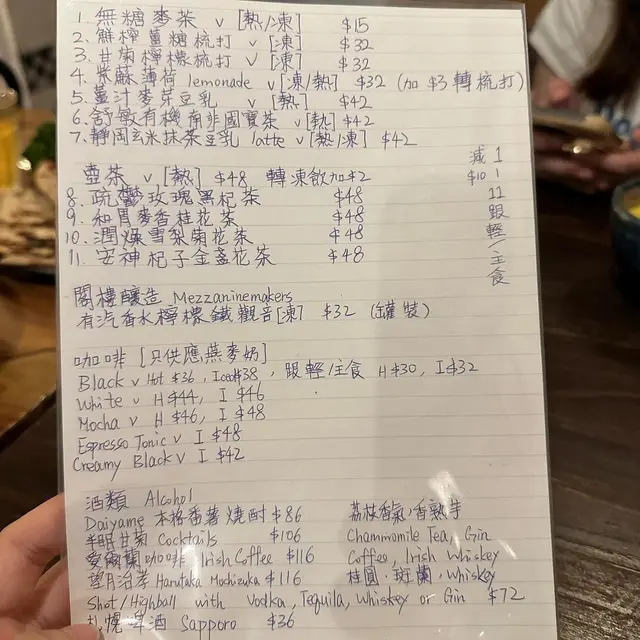 1. 無糖麥茶 v [熱/凍] $15
2. 鮮檸薑糖梳打 v [凍] $32
3. 甘菊檸檬梳打 v [凍] $32
4. 紫蘇薄荷 lemonade v [凍/熱] $32 (加 $3 轉梳打)
5. 薑汁麥芽豆乳 v [熱] $42
6. 舒敏有機南非國寶茶 v [熱] $42
7. 靜岡玄米抹茶豆乳 latte v [熱/凍] $42
壺茶 v [熱] $48 轉凍飲加$2
8. 疏鬱玫瑰黑杞茶 $48
9. 和胃麥香桂花茶 $48
10. 潤燥雪梨菊花茶 $48
11. 安神杞子金盞花茶 $48
1-11 跟輕/主食
減$10
閣樓釀造 Mezzaninemakers
有汽香水檸檬鐵觀音[凍] $32 (罐裝)
咖啡 [只供應燕麥奶]
Black v Hot $36, Iced$38, 跟輕/主食 H$30, I$32
White v H $44, I $46
Mocha v H $46, I $48
Espresso Tonic v I $48
Creamy Black v I $42
酒類 Alcohol
Daiyame 本格番薯燒酎 $86 荔枝香氣,香熟芋
半眠甘菊 Cocktails $106 Chammomile Tea, Gin
愛爾蘭咖啡 Irish Coffee $116 Coffee, Irish Whiskey
望月治孝 Harutaka Mochizuka $116 桂圓·斑蘭, Whiskey
Shot/Highball with Vodka, Tequila, Whiskey or Gin $72
札幌啤酒 Sapporo $36